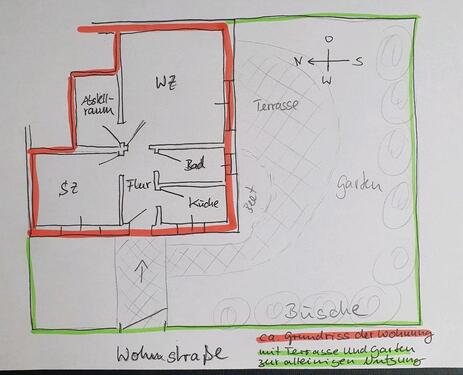 O
N S
W
WZ
Abstell-
raum
Terrasse
SZ
Flur
Bad
Küche
Beet
Garten
Büsche
Wohnstraße
ca. Grundriss der Wohnung
mit Terrasse und Garten
zur alleinigen Nutzung